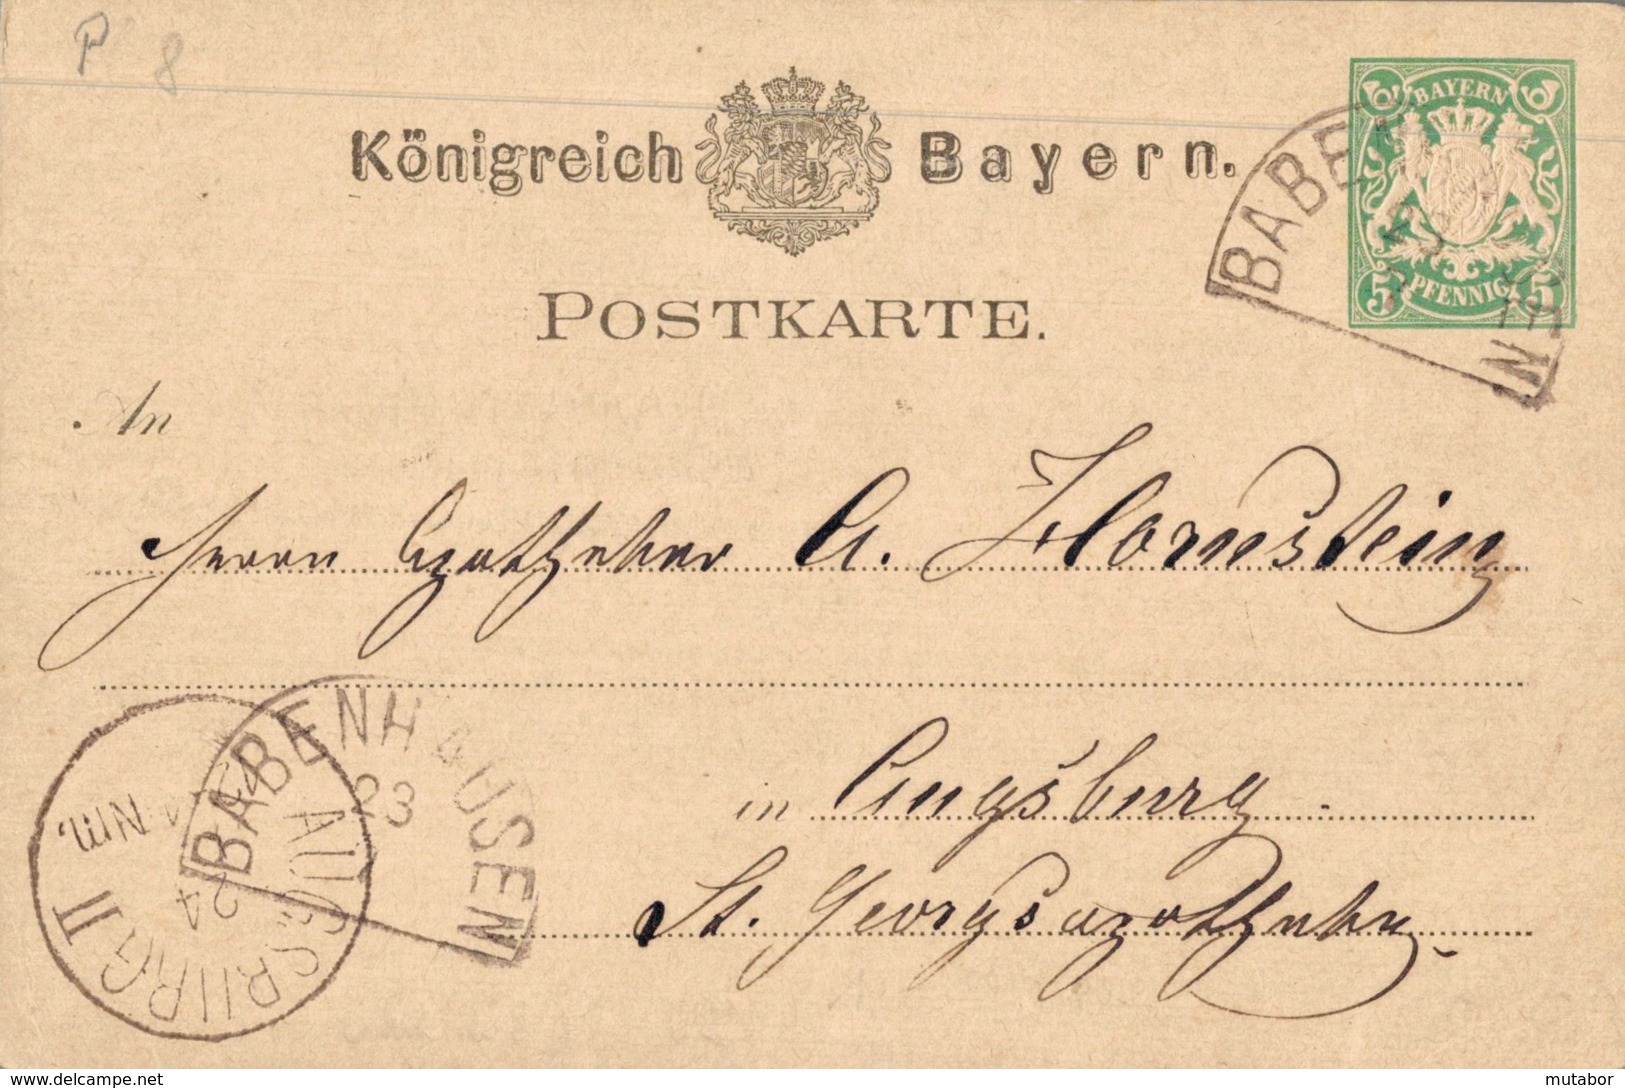 P 8
Königreich Bayern.
BAYERN
5 PFENNIG 5
BABENH
POSTKARTE.
An
Herrn Apotheker A. Hornstein
in Augsburg.
St. Georgsapotheke
BABENHAUSEN
23
AUGSBURG II
24
Nm.
delcampe.net
mutabor